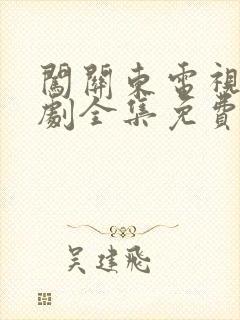 闖關東電視
劇全集免費
吴建飛